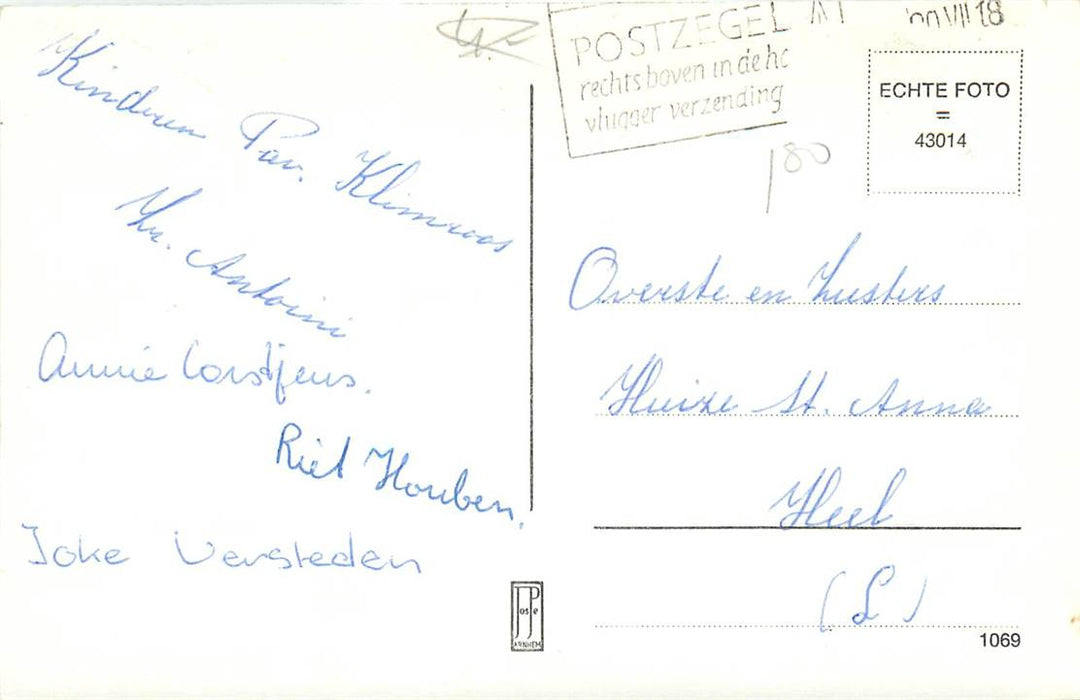 Kinderen Pav. Klimroos
Zr. Antoini
Annie Corstjens.
Riet Houben.
Joke Versteden
POSTZEGEL
rechtsboven in de ho
vlugger verzending
VII 18
ECHTE FOTO
=
43014
180
Overste en Zusters
Huize St. Anna
Heel
(L)
JosPe
ARNHEM
1069